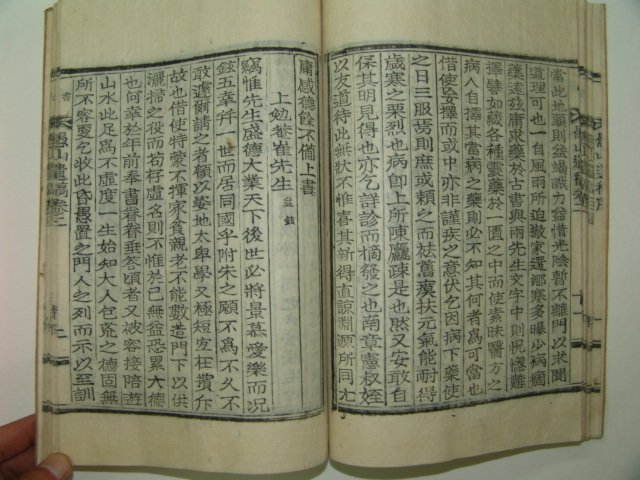 當此地頭則益端誠力益惜光陰暫不離門以求聞
道理可也一自風雨所迫搬家還鄉寒多曝少病痼
藥遠玆庸求藥於古書與兩先生文字中則怳惚難
擇譬如藏各種靈藥於一匱之中而使素昧醫方之
病人自擇其當病之藥則必不知其何者爲可當也
借使妄擇而或中亦非謹疾之意伏乞因病下藥使
之日三服焉則庶或賴之而祛舊瘼扶元氣能耐得
歲寒之栗烈也病即上所陳麤疎是也然又安敢自
保其明見得也亦乞詳診而摘發之也南章憲叔姪
以友道待此無狀不惟喜其新得直諒淵源所同尤
庸感德餘不備上書
上勉菴崔先生 益鉉
竊惟先生盛德大業天下後世必將景慕愛樂而况
鉉五幸幷一世而居同國乎附朱之願不爲不久不
敢遽爾請之者顧以姿地太卑學又極短空枉漬斥
故也借使特蒙不揮家貧親老不能數造門下以供
灑掃之役而苟存虛名則不惟於己無益恐累大德
也何幸於年前奉書眷眷垂答頃者又被容接陪遊
山水此足爲不虛度一生始知大人包荒之德固無
所不容更乞收此昏愚置之門人之列而示以至訓
書
愚山遺稿卷二